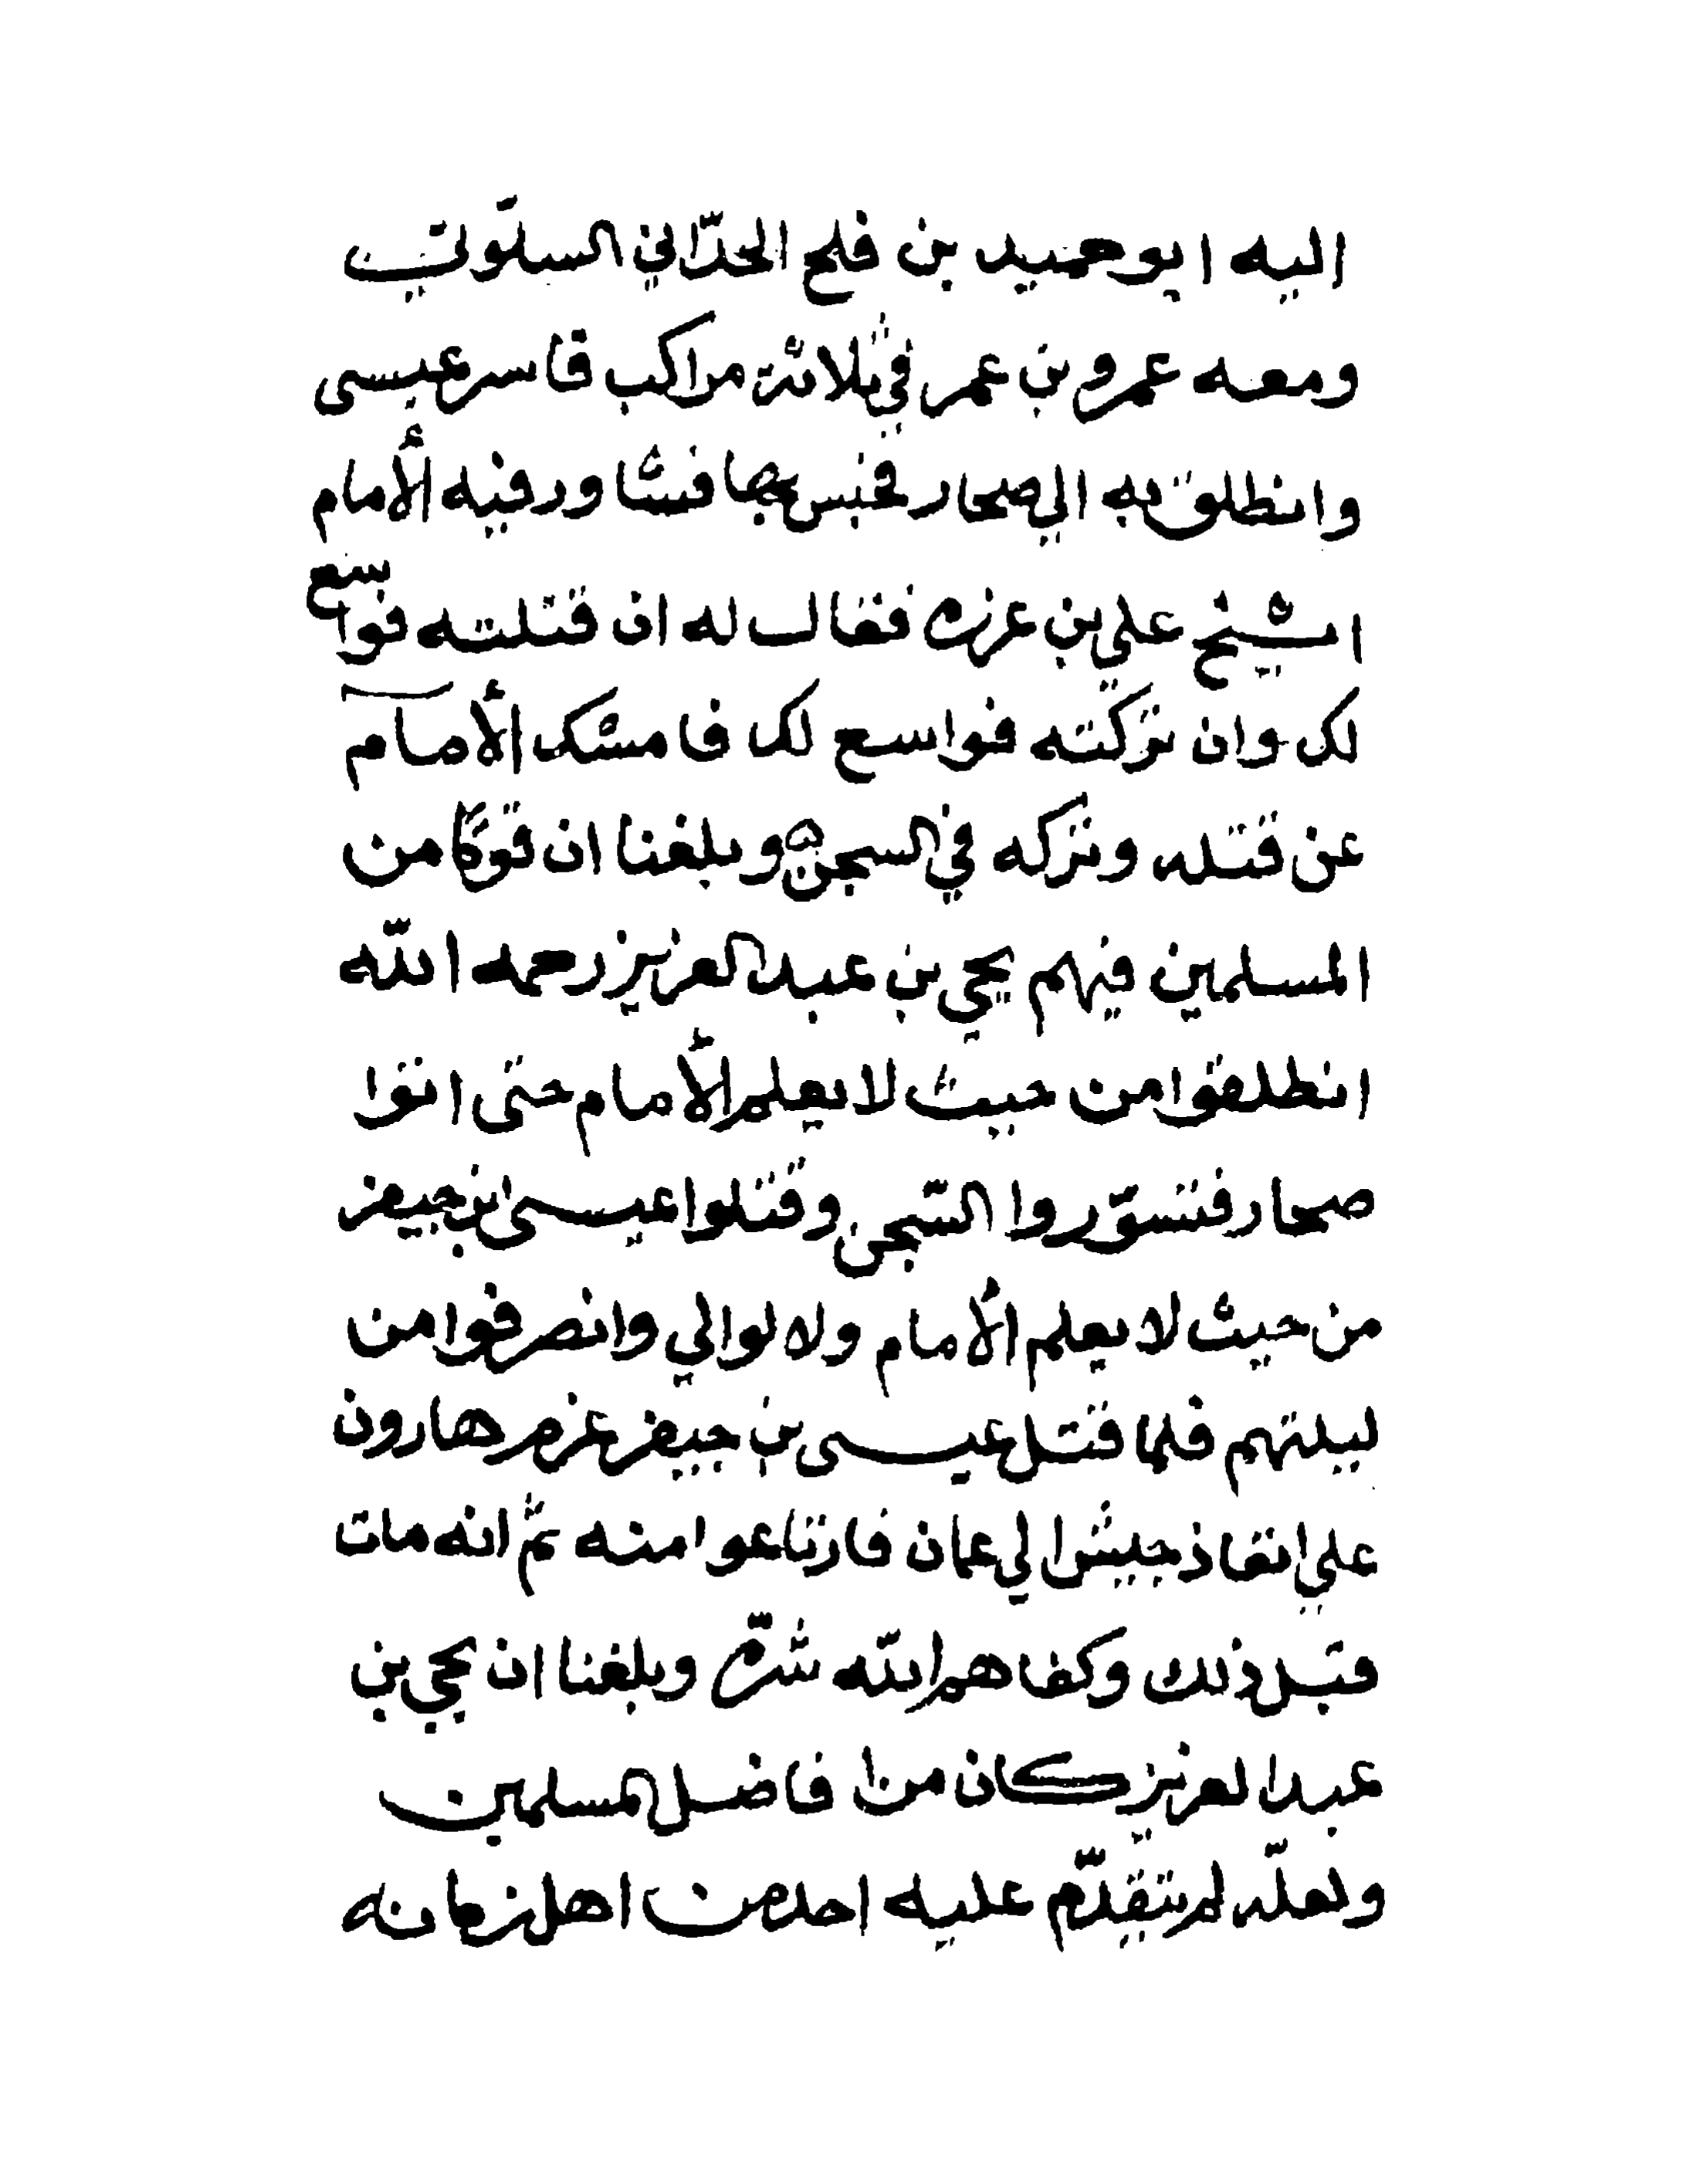 اليه ابو حميد بن فلح الحدّاني السلوتي
ومعه عمرو بن عمر في ثلاثة مراكب فاسر عيسى
وانطلق به الى صحار فحبس بها فشاور فيه الأمام
الشيخ علي بن عزره فقال له ان قتلته فواسع
لك وان تركته فواسع لك فامسك الأمام
عن قتله وتركه في السجن وبلغنا ان قومًا من
المسلمين فيهم يحي بن عبد العزيز رحمه الله
انطلقوا من حيث لا يعلم الأمام حتى اتوا
صحار فتسوّروا السّجن وقتلوا عيسى بن جيفر
من حيث لا يعلم الأمام ولا لوالي وانصرفوا من
ليلتهم فلما قتل عيسى بن جيفر عزم هارون
علي انفاذ جيش الي عمان فارتاعوا منه ثم انه مات
قبل ذلك وكفاهم الله شرّه وبلغنا ان يحي بن
عبد العزيز كان من افاضل المسلمين
ولعلّه لم يتقدّم عليه احد من اهل زمانه